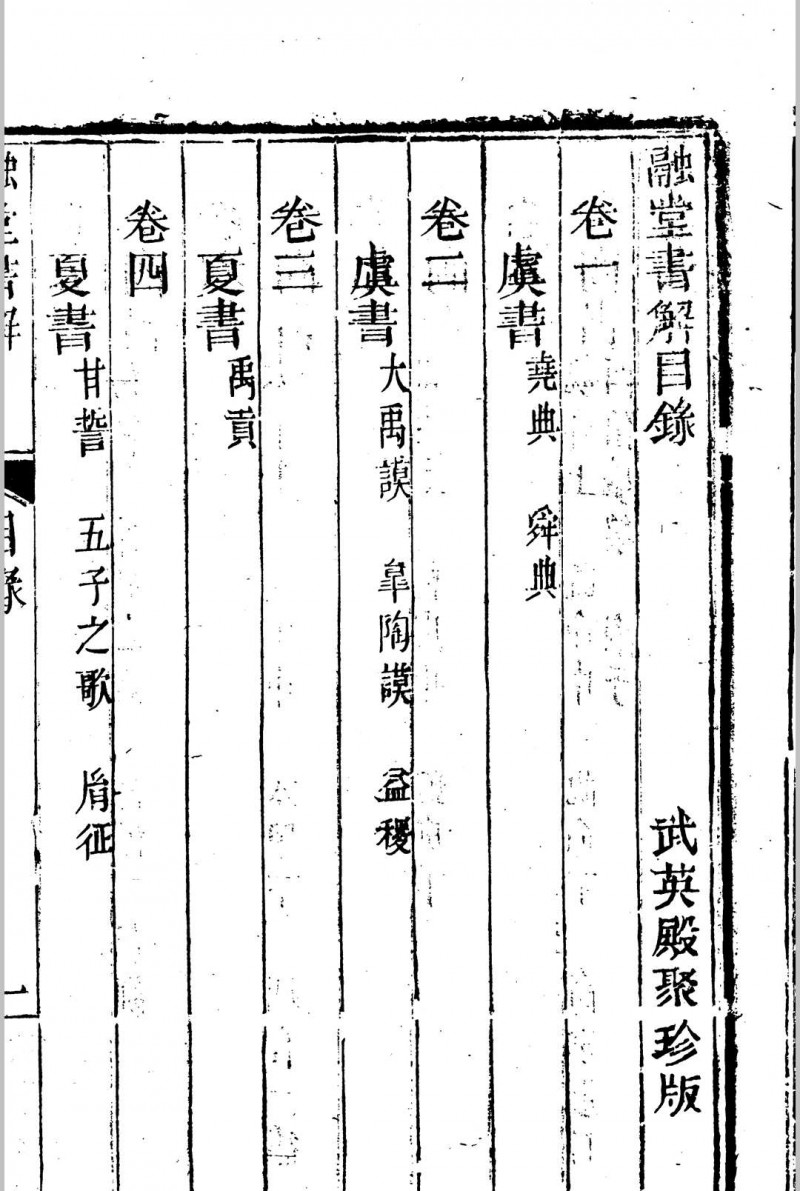 融堂書解目錄　武英殿聚珍版
卷一
虞書　堯典　舜典
卷二
虞書　大禹謨　皐陶謨　益稷
卷三
夏書　禹貢
卷四
夏書　甘誓　五子之歌　胤征
融堂書解　目錄　一